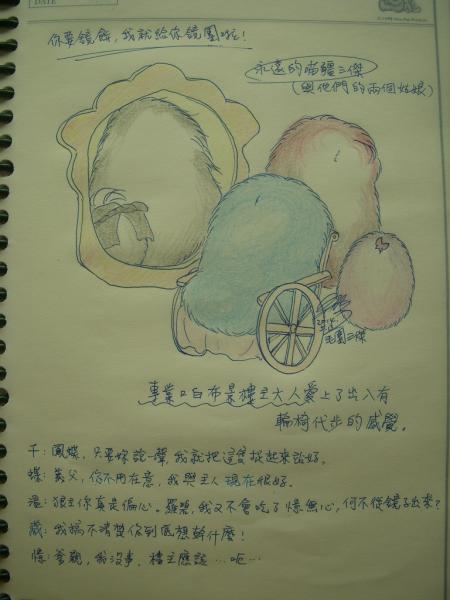 你要鏡餅，我就給你鏡團啦！
永遠的苗疆三傑
(與他們的兩個姑娘)
毛團三傑
專業口白布景樓主大人愛上了出入有
輪椅代步的感覺。
千：鳳蝶，只要妳說一聲，我就把這隻
蝶：義父，你不用在意，我與主人現在很好。
還：狼主你真是偏心。羅碧，我又不會吃了憶無心，何不從鏡子出來？
藏：我搞不清楚你到底想幹什麼！
憶：爹親，我沒事，樓主應該…呃…